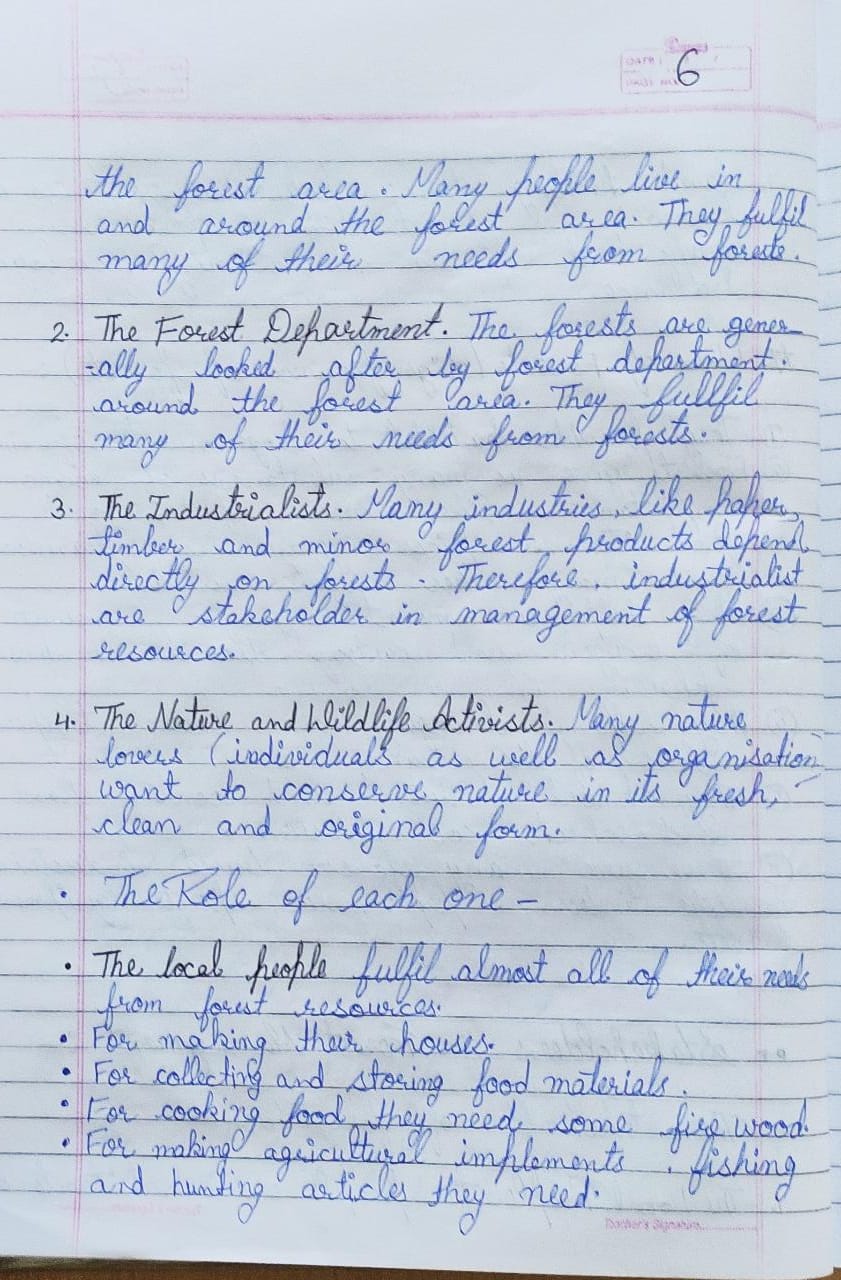 6
the forest area. Many people live in
and around the forest area. They fulfil
many of their needs from forests.
2. The Forest Department. The forests are gener-
-ally looked after by forest department.
around the forest area. They fullfil
many of their needs from forests.
3. The Industrialists. Many industries, like paper,
timber and minor forest products depend
directly on forests. Therefore, industrialist
are stakeholder in management of forest
resources.
4. The Nature and Wildlife Activists. Many nature
lovers (individuals as well as organisation
want to conserve nature in its fresh,
clean and original form.
• The Role of each one -
• The local people fulfil almost all of their needs
from forest resources.
• For making their houses.
• For collecting and storing food materials.
• For cooking food they need some fire wood.
• For making agricultural implements, fishing
and hunting articles they need.
Teacher's Signature